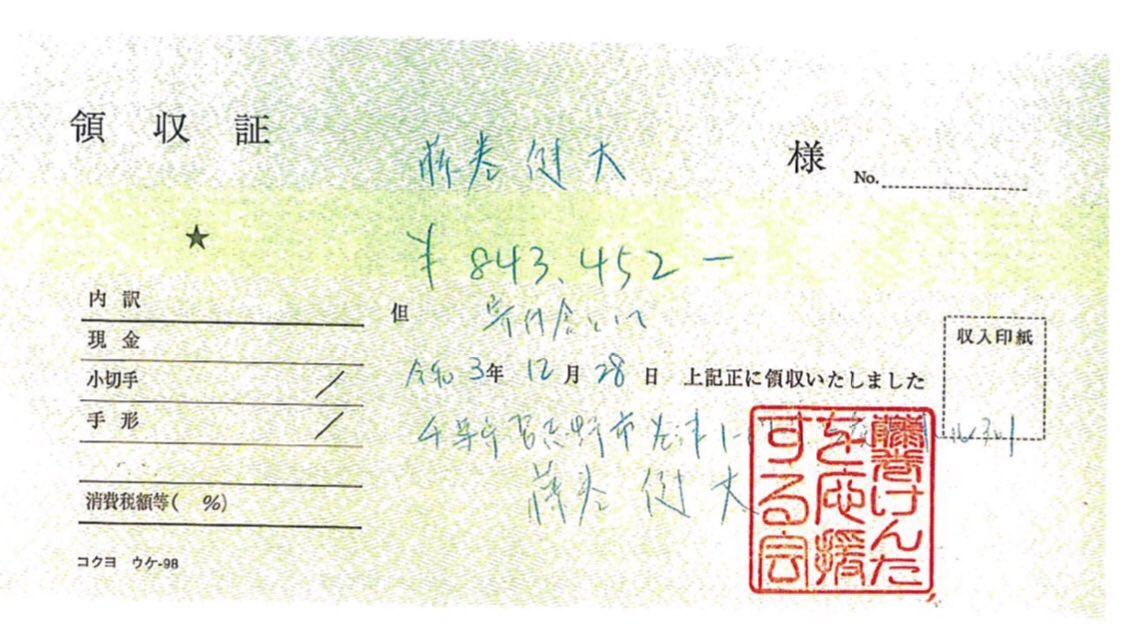 領収証
藤巻健太 様
No.
★
¥843,452-
内訳
現金
小切手
手形
消費税額等( %)
コクヨ ウケ-98
但 寄付金として
令和3年12月28日 上記正に領収いたしました
収入印紙
習志野市
藤巻健太
藤巻けんた
を応援
する会